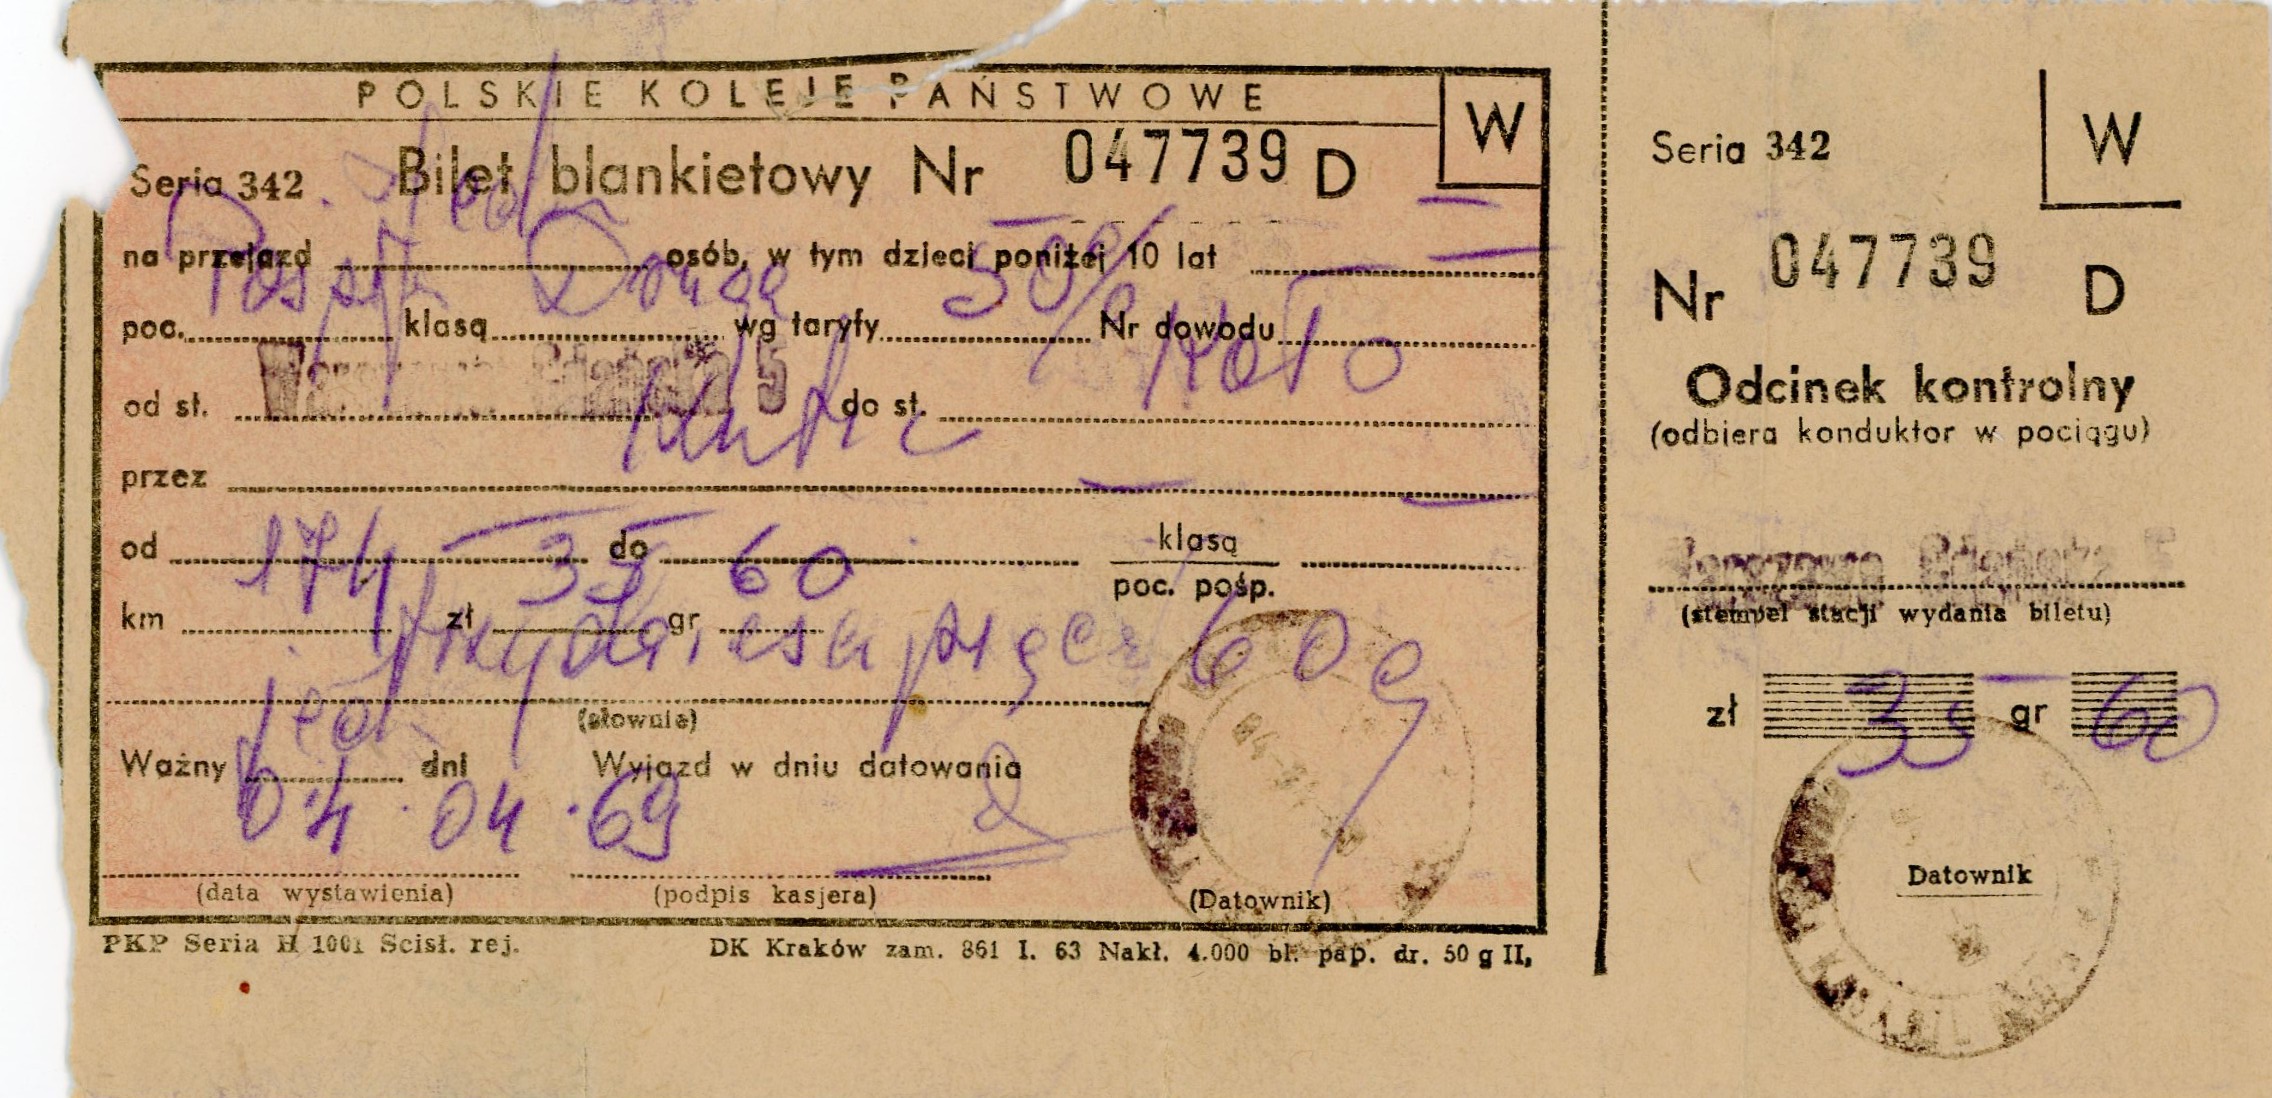 POLSKIE KOLEJE PAŃSTWOWE
W
Seria 342 Bilet blankietowy Nr 047739 D
jed
na przejazd osób, w tym dzieci poniżej 10 lat
Posp Drugą 50% —
poc. klasą wg taryfy Nr dowodu
Warszawa Gdańska 5 Koło
od st. do st.
Kutno
przez
od do klasą
poc. pośp.
174 35 60
km zł gr
trzydzieści pięć 60 g
(słownie)
jed
Ważny dni Wyjazd w dniu datowania
04.04.69
(data wystawienia) (podpis kasjera) (Datownik)
PKP Seria H 1001 Scisł. rej. DK Kraków zam. 861 I. 63 Nakł. 4.000 bl. pap. dr. 50 g II,
Seria 342 W
Nr 047739 D
Odcinek kontrolny
(odbiera konduktor w pociągu)
Warszawa Gdańska 5
(stempel stacji wydania biletu)
zł 35 gr 60
Datownik